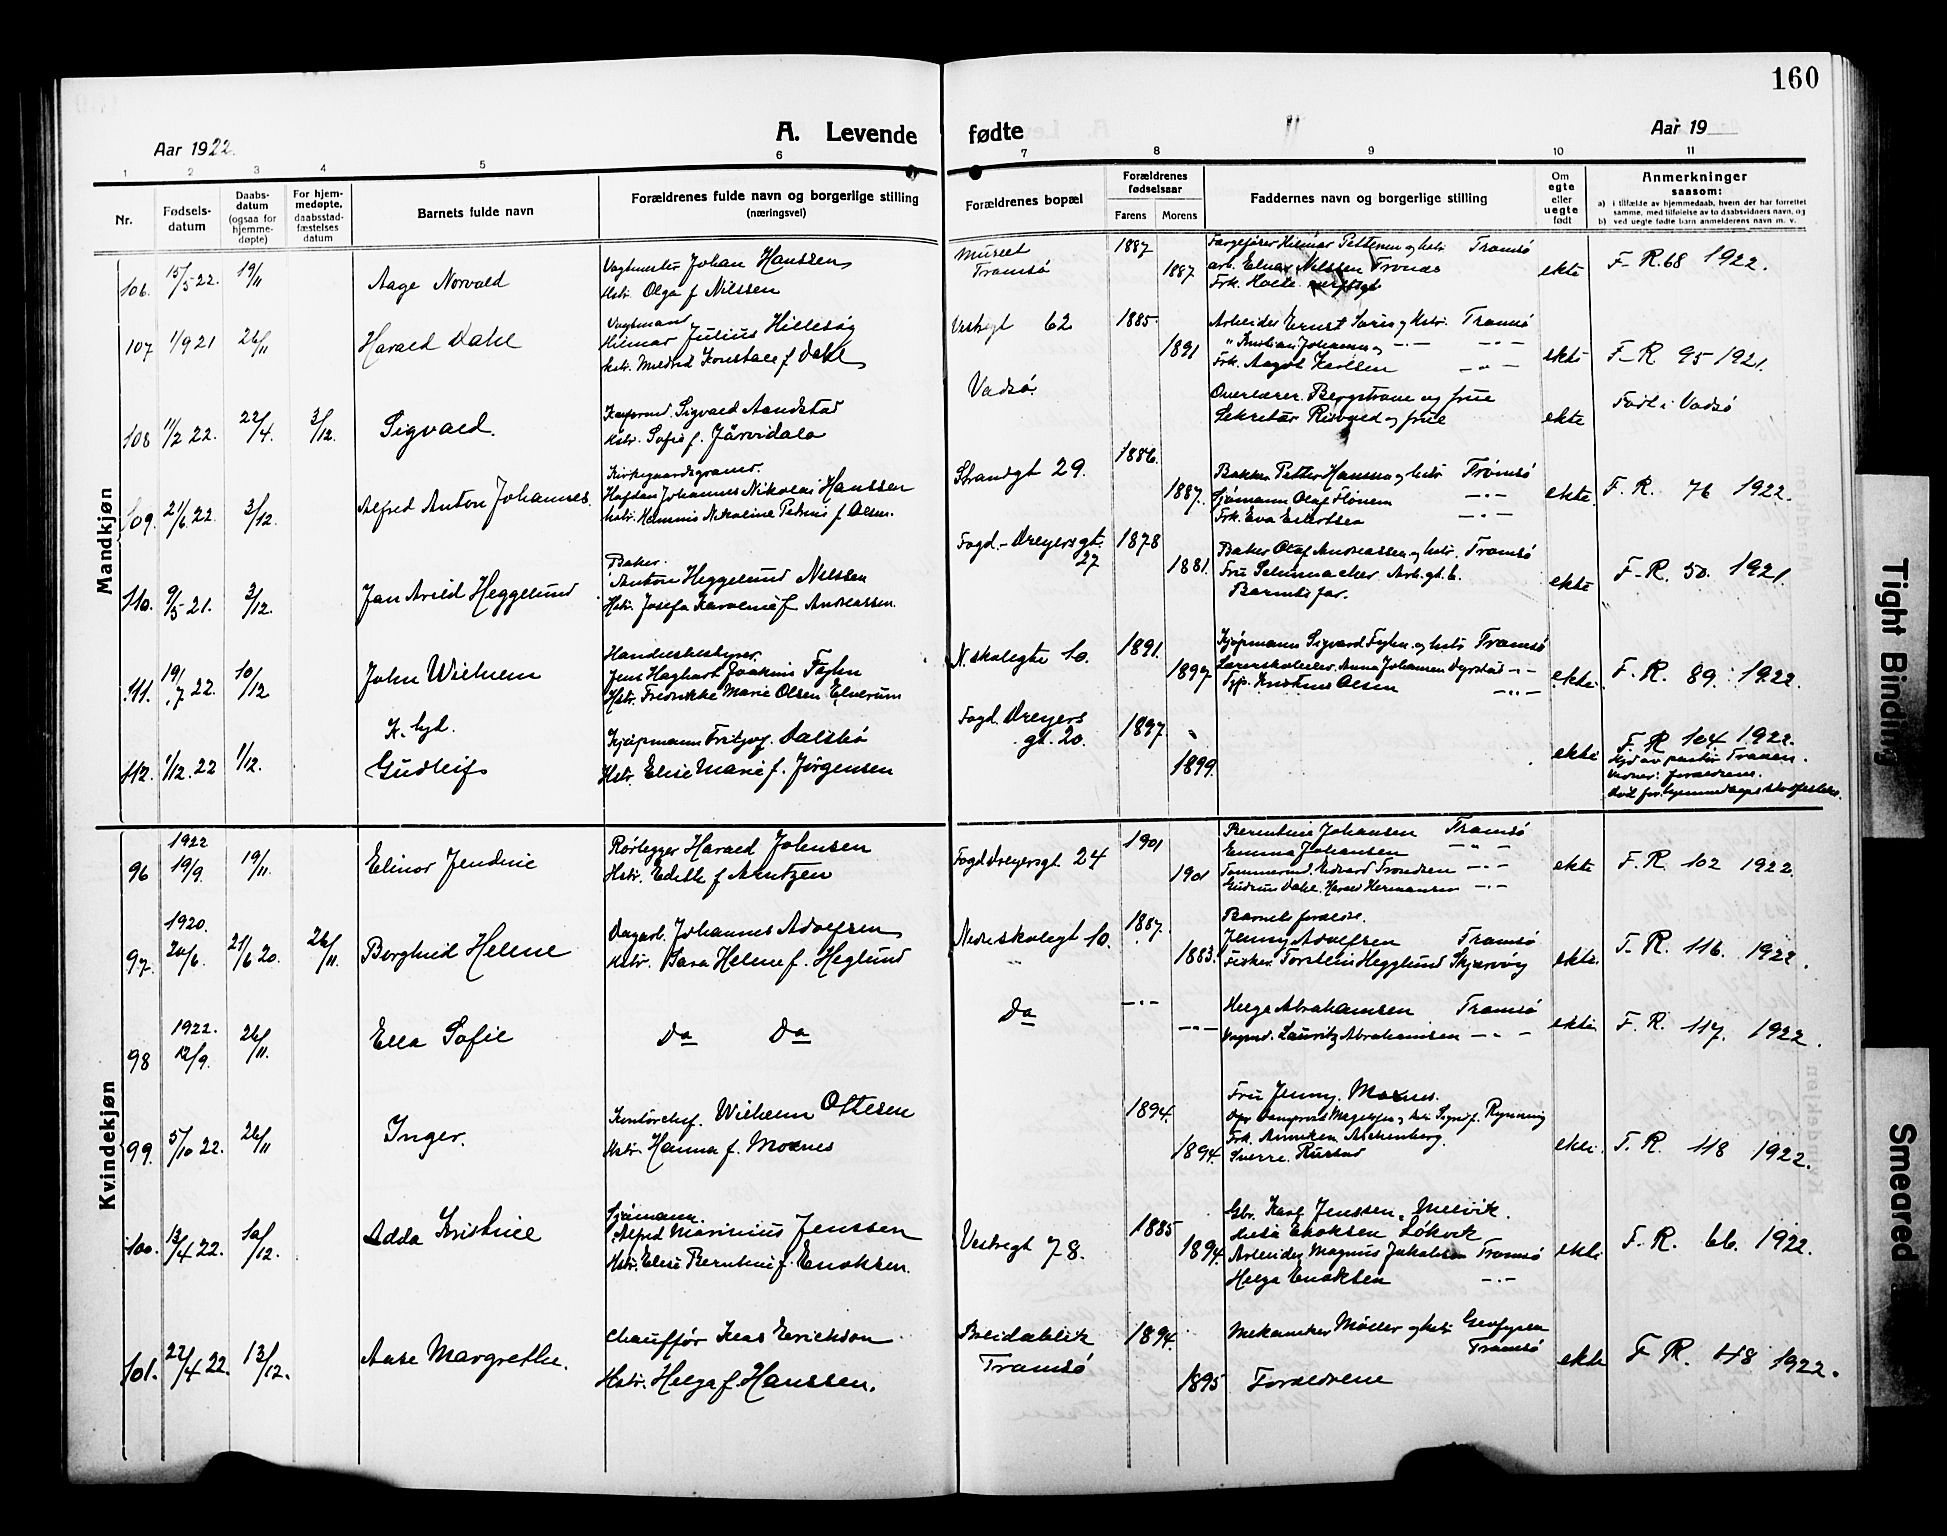 160
Aar 1922.
A. Levende fødte
Aar 19
1 2 3 4 5 6 7 8 9 10 11
Nr.
Fødsels-
datum
Daabs-
datum
(ogsaa for
hjemme-
døpte)
For hjem-
medøpte,
daabsstad-
fæstelses
datum
Barnets fulde navn
Forældrenes fulde navn og borgerlige stilling
(næringsvei)
Forældrenes bopæl
Forældrenes
fødselsaar
Farens Morens
Faddernes navn og borgerlige stilling
Om
egte
eller
uegte
født
Anmerkninger
saasom:
a) i tilfælde av hjemmedaab, hvem der har forrettet
samme, med tilføielse av to daabsvidners navn, og
b) ved uegte fødte barn anmelderens navn m. v.
Mandkjøn
106. 15/5 22. 19/11
Aage Norvald
Vagtmester Johan Hanssen
Hstr. Olga f Nilssen
Museet
Tromsø
1887
1887
Hilmar Pettersen og hstr Tromsø
arb. Einar Nilssen Tromsø
Frk. Holte
ekte
F-R. 68 1922.
107 1/9 21 26/11
Harald Dahl
Vagtmand
Hilmar Julius Hillesøy
hstr. Mildrid Konstanse f Dahl
Vestregt 62
1885.
1891
Arbeider Ernst Soris og hstr. Tromsø
" Kristian Johansen og -"- -"-
Frk. Aagot Karlsen -"-
ekte
F-R 95 1921.
108 11/2 22. 22/4. 3/12.
Sigvald.
Sigvald Aandstad
Hstr. Sofie f. Järvidalo
Vadsø.
Overlærer Bergstrøm og frue
Sekretær Risvold og frue
ekte
Født i Vadsø
109. 21/6 22. 3/12.
Alfred Anton Johannes.
Kirkegaardsgraver.
Halfdan Johannes Nikolai Hanssen
hstr. Hemmie Nikoline Petrine f Olsen.
Strandgt 29.
1886.
1887.
Bakker Petter Hansen og hstr Tromsø
Sjømann Olaf Hansen -"-
Frk. Eva Eilertsen -"-
ekte.
F. R. 76 1922.
110. 9/5 21. 3/12.
Jan Arild Heggelund
Baker.
Anton Heggelund Nilssen
Hstr. Josefa Karoline f Andreassen.
Fogd.-Dreyersgt.
27
1878
1881.
Baker Olaf Andreassen og hstr. Tromsø
Fru Schumacher Arb.gt. 6.
Barnets far.
ekte
F-R. 50. 1921.
111. 19/7 22. 10/12
John Wilhelm
Handelsbestyrer.
Jens Hagbart Joakim Figen
Hstr. Fredrikke Marie Olsen Elverum
N. skolegte 10.
1891.
1897
Kjøpmann Sigvard Figen og hstr Tromsø
Anna Johansen -"-
Typ. Kristine Olsen -"-
ekte.
F. R. 89. 1922.
112. 1/12. 22 1/12.
K. hjd.
Gudleif
Kjøpmann Fritjof. Dalsbø
Hstr. Elise Marie f. Jørgensen
Fogd. Dreyers
gt. 20.
1897
1899.
ekte
F. R 104 1922.
Hjd av pastor Traaen.
Vidner: foreldrene.
Død før hjemmedaaps stadfestelse.
Kvindekjøn
96 1922 19/9. 19/11.
Elinor Jendine
Rørlegger Harald Johnsen
Hstr. Edith f Arntzen
Fogd dreyersgt 24
1901
1901
Berentine Johansen Tromsø
Emma Johansen -"-
Tømmermd. Edvard Trondsen -"-
Gudrun Dahl. Harald Hermansen -"-
ekte
F. R. 102 1922.
97. 1920. 20/6. 21/6 20. 26/11.
Borghild Helene
Dagarb. Johannes Adolfsen
Hstr. Sara Helene f. Heglund
Nedre skolegt 10.
1887.
1883.
Barnets foreldre.
Jenny Adolfsen Tromsø
Fisker. Torstein Hegglund Skjervøy
ekte.
F. R. 116. 1922.
98 1922. 12/9. 26/11.
Ella Sofie
Do Do
Do
-"-
-"-
Helga Abrahamsen Tromsø
Lauritz Abrahamsen -"-
ekte
F. R. 117. 1922.
99. 5/10 22. 26/11
Inger.
Kontorchef. Wilhelm Ottesen
Hstr. Hanna f. Moxnes
1894.
1894.
Fru Jenny. Moxnes.
Frk. Anniken Aschenberg.
Sverre. Rustad
ekte.
F. R. 118 1922.
100. 13/4 22. 10/12.
Adda Kristine
Sjømann.
Alfred Marinius Jenssen
Hstr. Elise Berntine f. Enoksen.
Vestregt 78.
1885
1894.
Gbr. Karl Jenssen. Melvik.
Enoksen Løkvik
Arbeider Magnus Jakobsen Tromsø
Helga Enoksen -"-
ekte
F. R. 66. 1922.
101. 22/4 22. 13/12.
Aase Margrethe.
Chauffør Klas Erickson
Hstr. Helga f. Hanssen.
Breidablik
Tromsø
1894.
1895
Mekaniker Møller og hstr. Geofysen
Tromsø
Foreldrene
ekte
F. R. 48 1922.
Tight Binding
Smeared